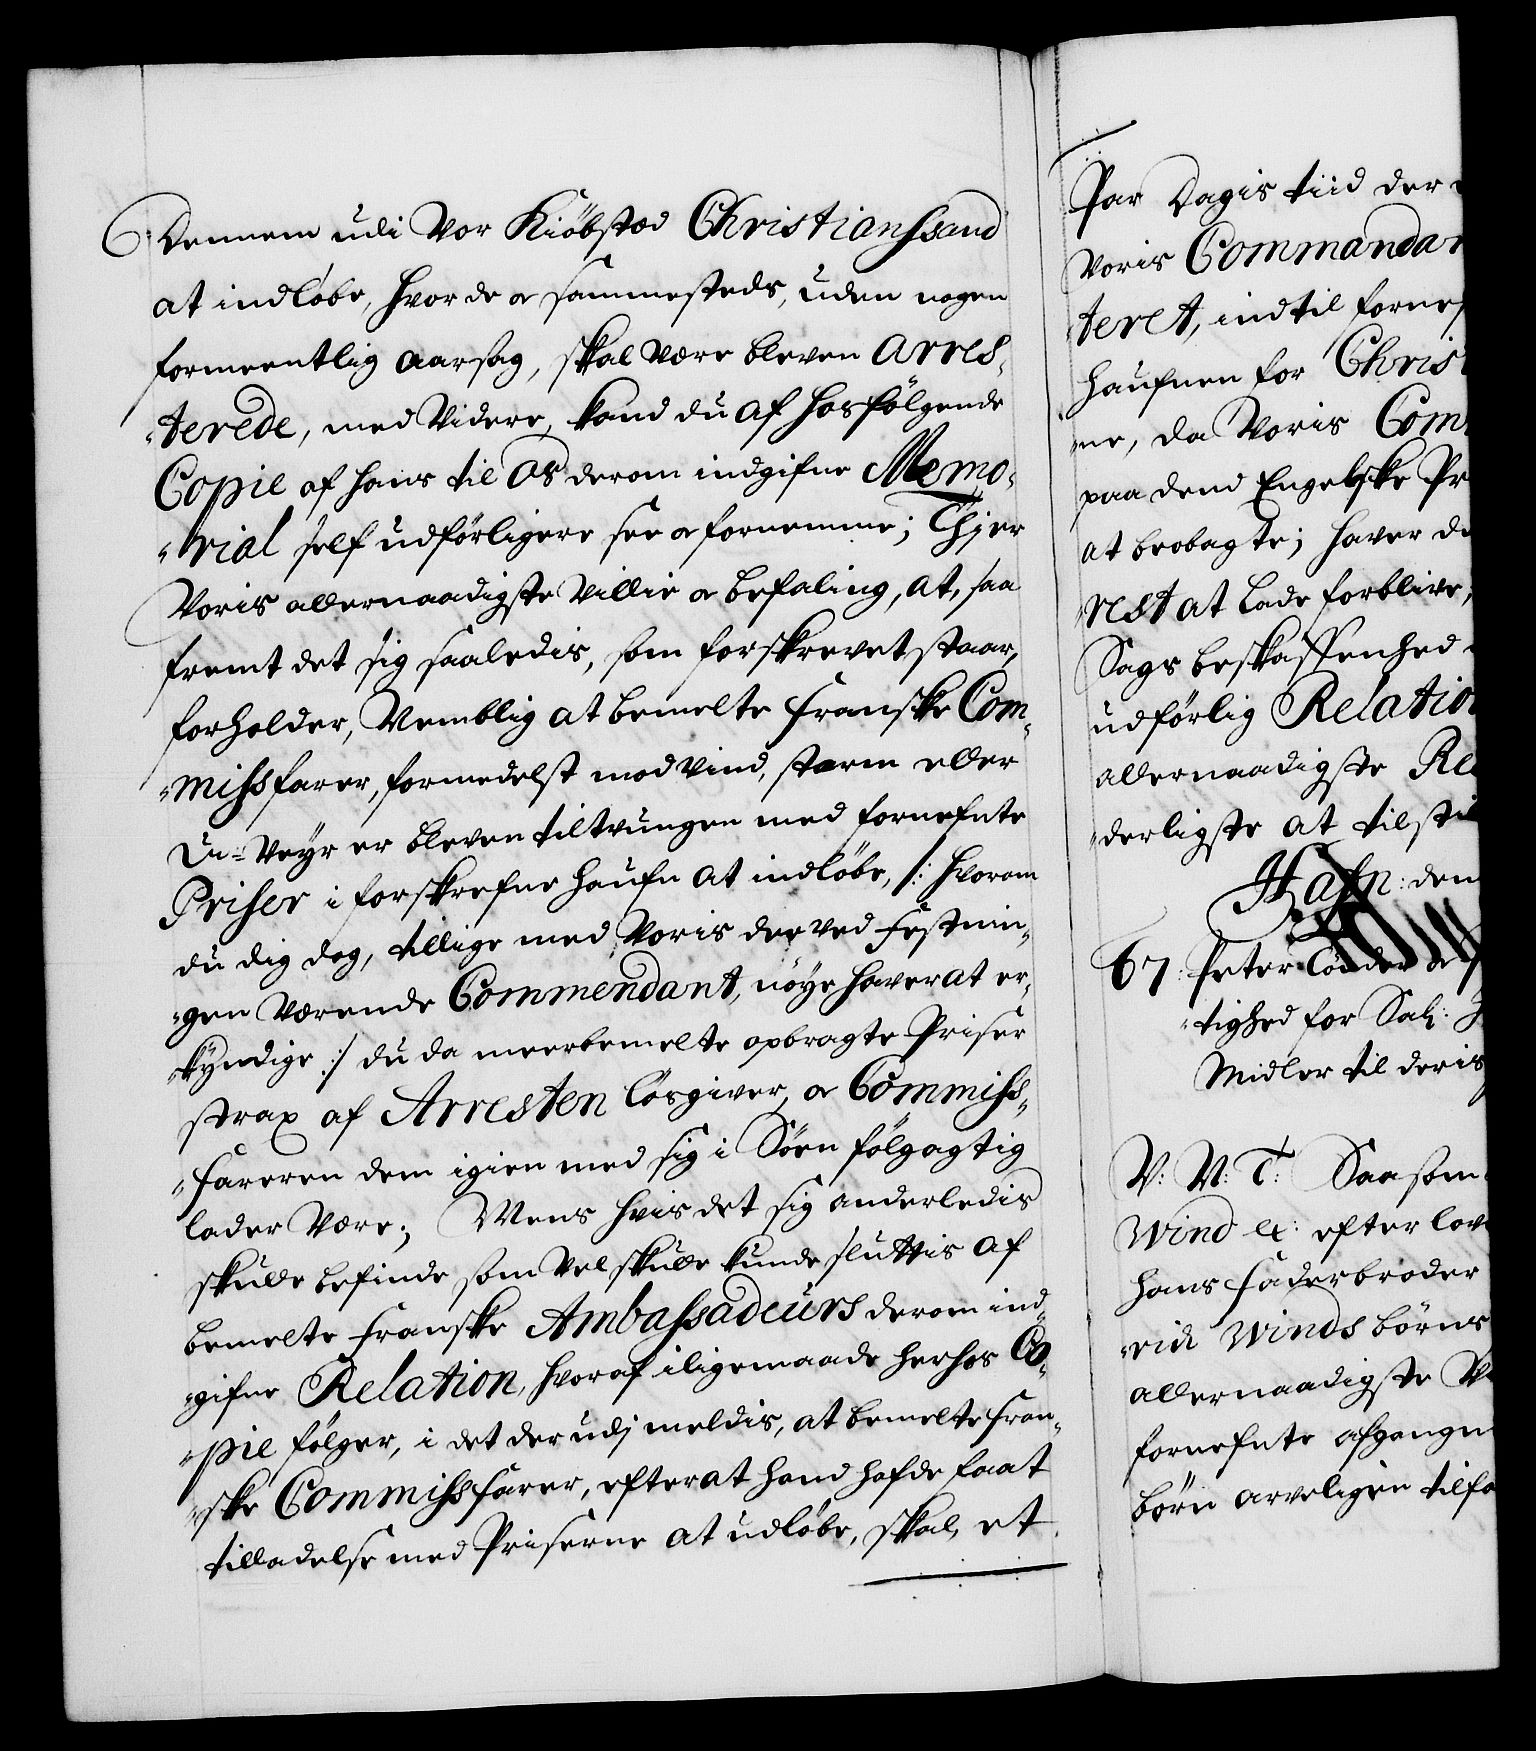 Dennem udi Vor Kiöbstæd Christianssand
at indløbe, hvor de oc sammesteds, uden nogen
formeentlig aarsag, skal være bleven Arres-
-terede, med Videre, kand du af hosfölgende
Copie af hans til Os derom indgifne Memo-
-rial self udförligere see oc fornemme; Thj er
Voris allernaadigste Villie oc befaling, at, saa
fremt det sig saaledis, som forskrevet staar,
forholder, Nemblig at bemelte Franske Com-
-missfarer, formedelst mod Vind, storm eller
Un-Veyr er bleven tiltvungen med fornefnte
Priser i forskrefne haufn at indlöbe, /: hvorom
du dig dog, tillige med Voris derved Festnin-
-gen Værende Commendant, nöye haver at er-
-kyndige :/ du da meerbemelte opbragte Priser
strax af Arresten lösgiver, oc Commiss-
-fareren dem igien med sig i Söen fölgagtig
lader Være; Mens hvis det sig anderledis
skulle befinde, som Vel skulle kunde sluttis af
bemelte Franske Ambassadeurs derom ind-
-gifne Relation, hvoraf iligemaade herhos Co-
-pie fölger, i det der udj meldis, at bemelte Fran-
-ske Commissfarer, efter at hand hafde faaet
tilladelse med Priserne at udløbe, skal et
Par Dagis tiid der
Voris Commandan
teret, indtil forne
haufnen for Christ
-ne, da Voris Com
paa dend Engelske Pr
at beobagte; haver du
rest at lade forblive,
Sags beskaffenhed
udförlig Relation
allernaadigste Re
-derligste at tilsti
Hafn: den
67: Peter Tønder oc
-tighed for Sal:
Midler til deris
V: N: T: Saasom
Wind etc: efter lov
hans Faderbroder
Winds börns
allernaadigste V
fornefnte afgangne
börn arveligen tilfa